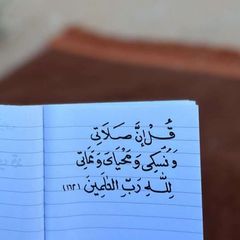 قُلْ إِنَّ صَلَاتِي
وَنُسُكِي وَمَحْيَايَ وَمَمَاتِي
لِلَّهِ رَبِّ الْعَالَمِينَ (١٦٢)